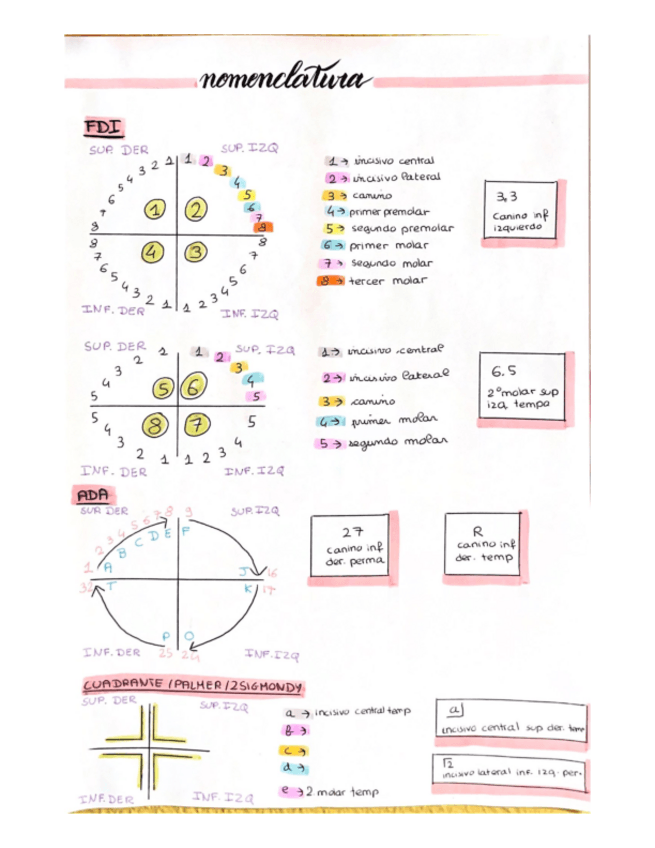 nomenclatura
FDI
SUP. DER
SUP. IZQ
8 7 6 5 4 3 2 1
1 2 3 4 5 6 7 8
1 2
4 3
8 7 6 5 4 3 2 1
1 2 3 4 5 6 7 8
INF. DER
INF. IZQ
1 → incisivo central
2 → incisivo lateral
3 → canino
4 → primer premolar
5 → segundo premolar
6 → primer molar
7 → segundo molar
8 → tercer molar
3,3
Canino inf
izquierdo
SUP. DER
SUP. IZQ
5 4 3 2 1
1 2 3 4 5
5 6
8 7
5 4 3 2 1
1 2 3 4 5
INF. DER
INF. IZQ
1 → incisivo central
2 → incisivo lateral
3 → canino
4 → primer molar
5 → segundo molar
6.5
2º molar sup
izq tempo
ADA
SUP. DER
SUP. IZQ
1 2 3 4 5 6 7 8 9
A B C D E F
J 16
32 T
K 17
P O
25 24
INF. DER
INF. IZQ
27
canino inf
der. perma
R
canino inf
der. temp
CUADRANTE / PALMER / ZSIGMONDY
SUP. DER
SUP. IZQ
INF. DER
INF. IZQ
a → incisivo central temp
b →
c →
d →
e → 2 molar temp
a
incisivo central sup der. temp
2
incisivo lateral inf. izq. per.